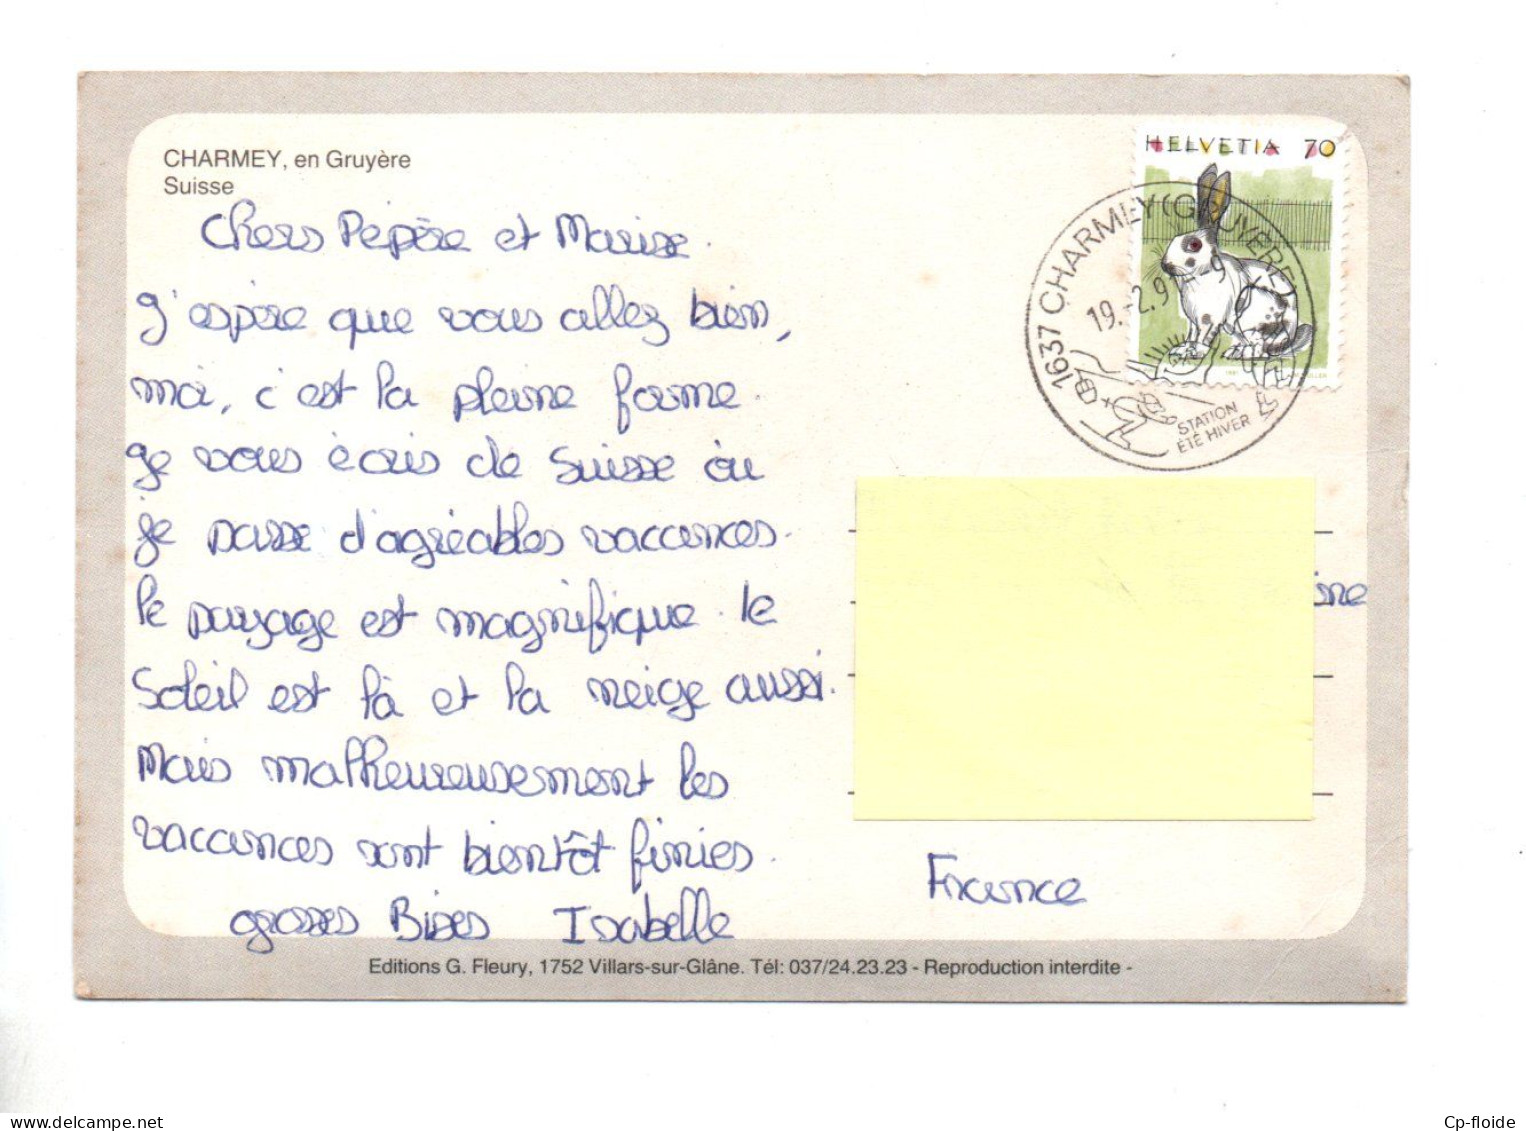 CHARMEY, en Gruyère
Suisse
HELVETIA 70
1637 CHARMEY (GRUYÈRE)
19.-2.9 -9
STATION
ÉTÉ HIVER
Chers Pépère et Marise.
J'espère que vous allez bien,
moi, c'est la pleine forme.
Je vous écris de Suisse ou
je passe d'agréables vacances.
le paysage est magnifique. le
Soleil est là et la neige aussi.
Mais malheureusement les
vacances sont bientôt finies.
grosses Bises Isabelle
France
Editions G. Fleury, 1752 Villars-sur-Glâne. Tél: 037/24.23.23 - Reproduction interdite -
Cp-floide